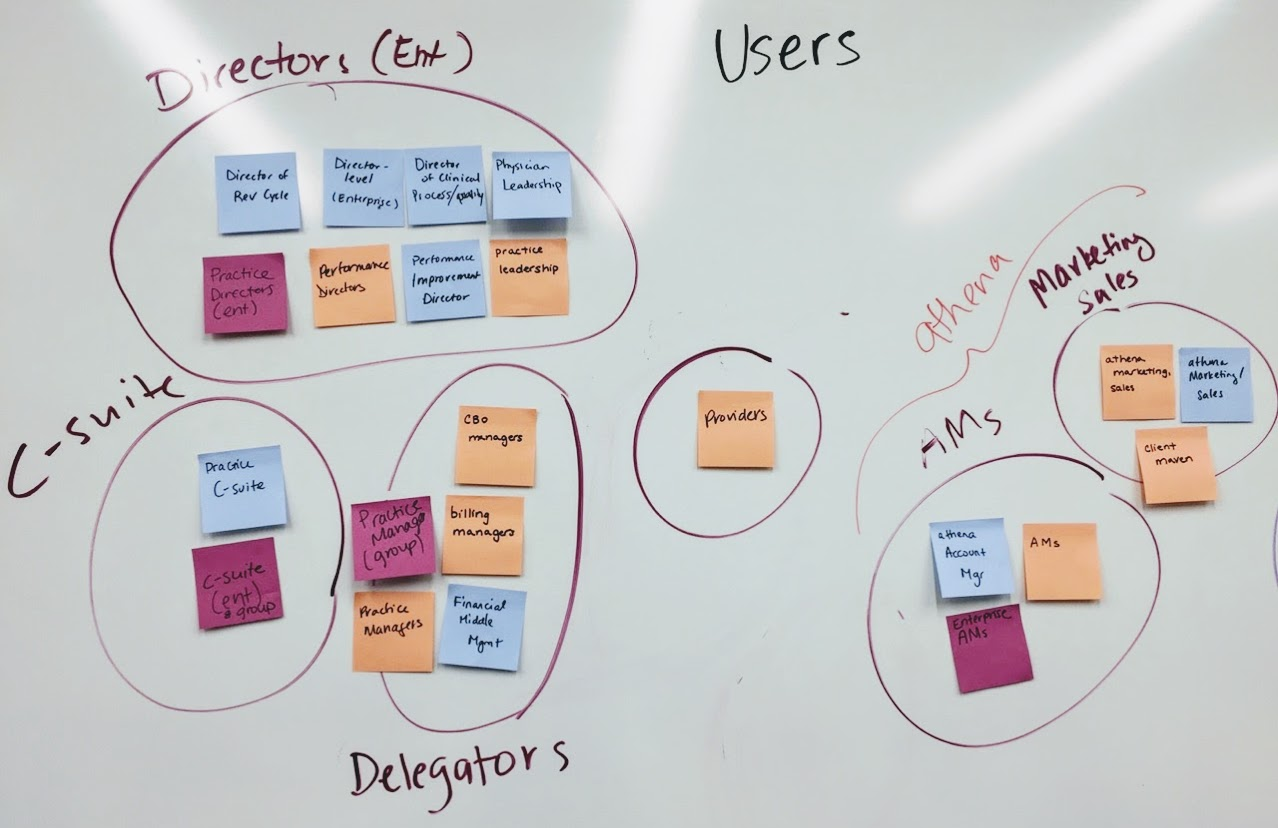 Users
Directors (Ent)
Director of
Rev Cycle
Director-
level
(Enterprise)
Director
of Clinical
Process/quality
Physician
Leadership
Practice
Directors
(ent)
Performance
Directors
Performance
Improvement
Director
practice
leadership
C-suite
Practice
C-suite
C-suite
(ent)
& group
CBO
managers
Practice
Manage
(group)
billing
managers
Practice
Managers
Financial
Middle
Mgmt
Delegators
Providers
athena
Marketing
Sales
athena
marketing,
sales
athena
Marketing/
Sales
client
maven
AMs
athena
Account
Mgr
AMs
Enterprise
AMs